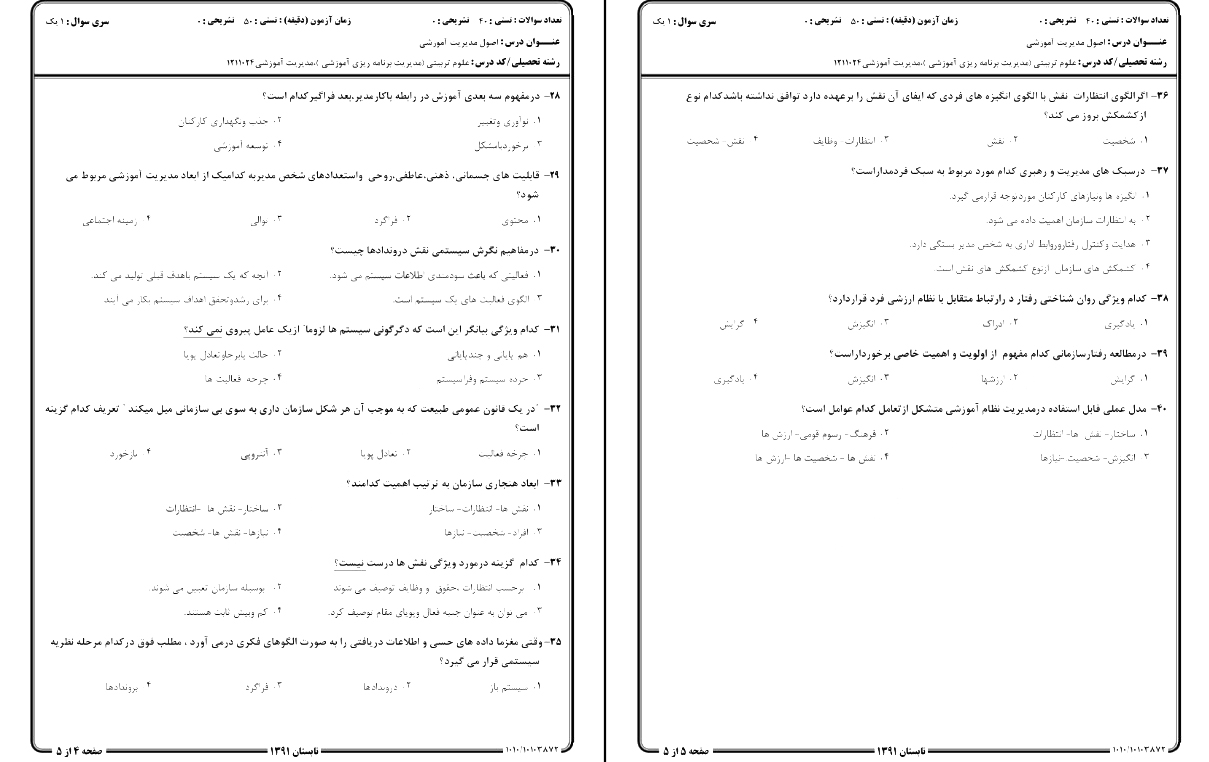 تعداد سوالات : تستی : ۴۰ تشریحی : ۰ زمان آزمون (دقیقه) : تستی : ۵۰ تشریحی : ۰ سری سوال : ۱ یک
عنـــوان درس : اصول مدیریت آموزشی
رشته تحصیلی/کد درس : علوم تربیتی (مدیریت برنامه ریزی آموزشی )،مدیریت آموزشی۱۲۱۱۰۲۴
۲۸- درمفهوم سه بعدی آموزش در رابطه باکارمدیر،بعد فراگیرکدام است؟
۱. نوآوری وتغییر ۲. جذب ونگهداری کارکنان
۳. برخوردبامشکل ۴. توسعه آموزشی
۲۹- قابلیت های جسمانی، ذهنی،عاطفی،روحی واستعدادهای شخص مدیربه کدامیک از ابعاد مدیریت آموزشی مربوط می
شود؟
۱. محتوی ۲. فراگرد ۳. توالی ۴. زمینه اجتماعی
۳۰- درمفاهیم نگرش سیستمی نقش دروندادها چیست؟
۱. فعالیتی که باعث سودمندی اطلاعات سیستم می شود. ۲. آنچه که یک سیستم باهدف قبلی تولید می کند.
۳. الگوی فعالیت های یک سیستم است. ۴. برای رشدوتحقق اهداف سیستم بکار می آیند
۳۱- کدام ویژگی بیانگر این است که دگرگونی سیستم ها لزوما" ازیک عامل پیروی نمی کند؟
۱. هم پایانی و چندپایانی ۲. حالت پابرجاوتعادل پویا
۳. خرده سیستم وفراسیستم ۴. چرخه فعالیت ها
۳۲- "در یک قانون عمومی طبیعت که به موجب آن هر شکل سازمان داری به سوی بی سازمانی میل میکند " تعریف کدام گزینه
است؟
۱. چرخه فعالیت ۲. تعادل پویا ۳. آنتروپی ۴. بازخورد
۳۳- ابعاد هنجاری سازمان به ترتیب اهمیت کدامند؟
۱. نقش ها- انتظارات- ساختار ۲. ساختار- نقش ها -انتظارات
۳. افراد- شخصیت- نیازها ۴. نیازها- نقش ها- شخصیت
۳۴- کدام گزینه درمورد ویژگی نقش ها درست نیست؟
۱. برحسب انتظارات ،حقوق و وظایف توصیف می شوند. ۲. بوسیله سازمان تعیین می شوند.
۳. می توان به عنوان جنبه فعال وپویای مقام توصیف کرد. ۴. کم وبیش ثابت هستند.
۳۵- وقتی مغزما داده های حسی و اطلاعات دریافتی را به صورت الگوهای فکری درمی آورد ، مطلب فوق درکدام مرحله نظریه
سیستمی قرار می گیرد؟
۱. سیستم باز ۲. دروندادها ۳. فراگرد ۴. بروندادها
۱۰۱۰/۱۰۱۰۳۸۷۲ تابستان ۱۳۹۱ صفحه ۴ از ۵
تعداد سوالات : تستی : ۴۰ تشریحی : ۰ زمان آزمون (دقیقه) : تستی : ۵۰ تشریحی : ۰ سری سوال : ۱ یک
عنـــوان درس : اصول مدیریت آموزشی
رشته تحصیلی/کد درس : علوم تربیتی (مدیریت برنامه ریزی آموزشی )،مدیریت آموزشی۱۲۱۱۰۲۴
۳۶- اگرالگوی انتظارات نقش با الگوی انگیزه های فردی که ایفای آن نقش را برعهده دارد توافق نداشته باشدکدام نوع
ازکشمکش بروز می کند؟
۱. شخصیت ۲. نقش ۳. انتظارات- وظایف ۴. نقش- شخصیت
۳۷- درسبک های مدیریت و رهبری کدام مورد مربوط به سبک فردمداراست؟
۱. انگیزه ها ونیازهای کارکنان موردتوجه قرارمی گیرد.
۲. به انتظارات سازمان اهمیت داده می شود.
۳. هدایت وکنترل رفتاروروابط اداری به شخص مدیر بستگی دارد.
۴. کشمکش های سازمان ازنوع کشمکش های نقش است.
۳۸- کدام ویژگی روان شناختی رفتار د رارتباط متقابل با نظام ارزشی فرد قراردارد؟
۱. یادگیری ۲. ادراک ۳. انگیزش ۴. گرایش
۳۹- درمطالعه رفتارسازمانی کدام مفهوم از اولویت و اهمیت خاصی برخورداراست؟
۱. گرایش ۲. ارزشها ۳. انگیزش ۴. یادگیری
۴۰- مدل عملی قابل استفاده درمدیریت نظام آموزشی متشکل ازتعامل کدام عوامل است؟
۱. ساختار- نقش ها- انتظارات ۲. فرهنگ- رسوم قومی- ارزش ها
۳. انگیزش- شخصیت -نیازها ۴. نقش ها - شخصیت ها -ارزش ها
۱۰۱۰/۱۰۱۰۳۸۷۲ تابستان ۱۳۹۱ صفحه ۵ از ۵